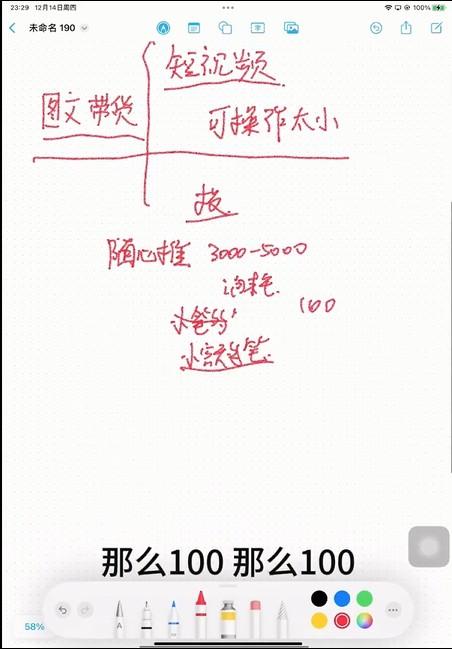 23:29 12月14日周四
100%
未命名 190
短视频
图文带货
可操作太小
投
随心推 3000-5000
100
小额多笔
那么100 那么100
A
58%